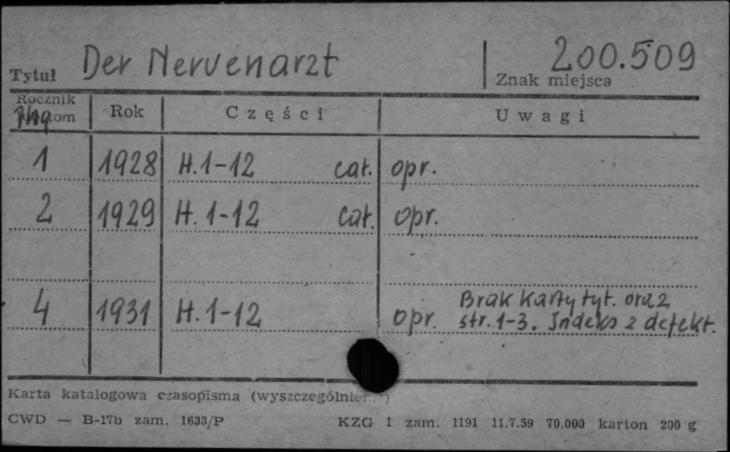 Tytuł Der Nervenarzt 200.509
Znak miejsca
Rocznik
Jhg tom Rok Części Uwagi
1 1928 H. 1-12 cał. opr.
2 1929 H. 1-12 cał. opr.
Brak Karty tyt. oraz
4 1931 H. 1-12 opr. str. 1-3. Indeks z defekt.
Karta katalogowa czasopisma
CWD — B-17b zam. 1633/P KZG 1 zam. 1191 11.7.59 70.000 karton 200 g